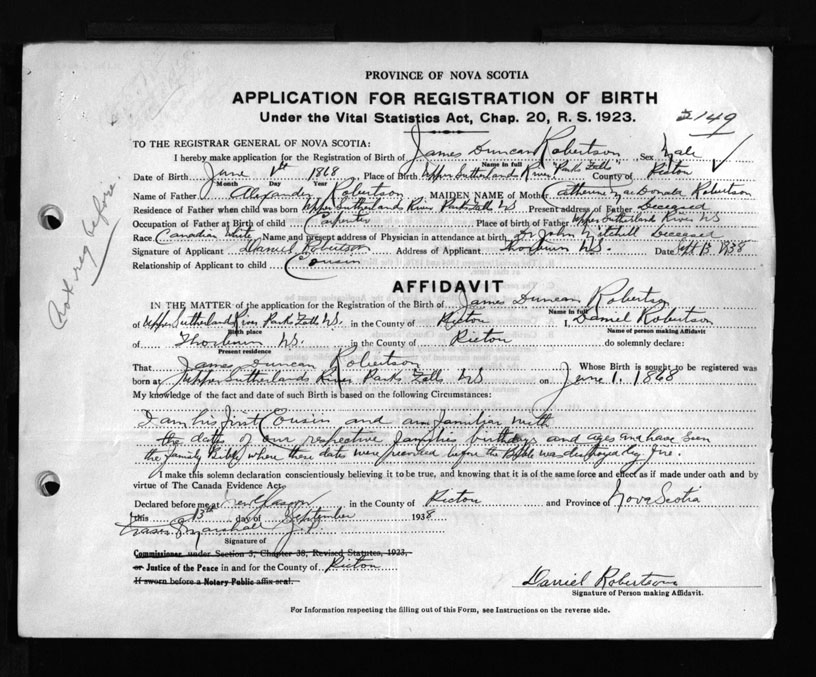 PROVINCE OF NOVA SCOTIA
APPLICATION FOR REGISTRATION OF BIRTH
Under the Vital Statistics Act, Chap. 20, R. S. 1923.
149
TO THE REGISTRAR GENERAL OF NOVA SCOTIA:
I hereby make application for the Registration of Birth of James Duncan Robertson Sex Male
Name in full
Date of Birth June 1st 1868 Place of Birth Upper Sutherland River Parks Falls County of Pictou
Month Day Year
Name of Father Alexander Robertson MAIDEN NAME of Mother Catherine MacDonald Robertson
Residence of Father when child was born Upper Sutherland River Parks Falls NS Present address of Father Deceased
Occupation of Father at Birth of child Carpenter Place of birth of Father Upper Sutherland River NS
Race Canadian White Name and present address of Physician in attendance at birth Dr John Mitchell Deceased
Signature of Applicant Daniel Robertson Address of Applicant Thorburn NS. Date Sept 13 1938
Relationship of Applicant to child Cousin
Not reg before.
AFFIDAVIT
IN THE MATTER of the application for the Registration of the Birth of James Duncan Robertson
Name in full
of Upper Sutherland River Parks Falls NS. in the County of Pictou I, Daniel Robertson
Birth place Name of person making Affidavit
of Thorburn NS. in the County of Pictou do solemnly declare:
Present residence
That James Duncan Robertson Whose Birth is sought to be registered was
born at Upper Sutherlands River Parks Falls NS on June 1. 1868
My knowledge of the fact and date of such Birth is based on the following Circumstances:
I am his first Cousin and am familiar with
the dates of our respective families birthdays and ages and have seen
the family Bible where these dates were recorded before the Bible was destroyed by fire.
I make this solemn declaration conscientiously believing it to be true, and knowing that it is of the same force and effect as if made under oath and by
virtue of The Canada Evidence Act.
Declared before me at New Glasgow in the County of Pictou and Province of Nova Scotia
this 13th day of September 1938
Marshall J.P.
Signature of
Commissioner under Section 3, Chapter 38, Revised Statutes, 1923,
or Justice of the Peace in and for the County of Pictou
If sworn before a Notary Public affix seal.
Daniel Robertson
Signature of Person making Affidavit.
For Information respecting the filling out of this Form, see Instructions on the reverse side.